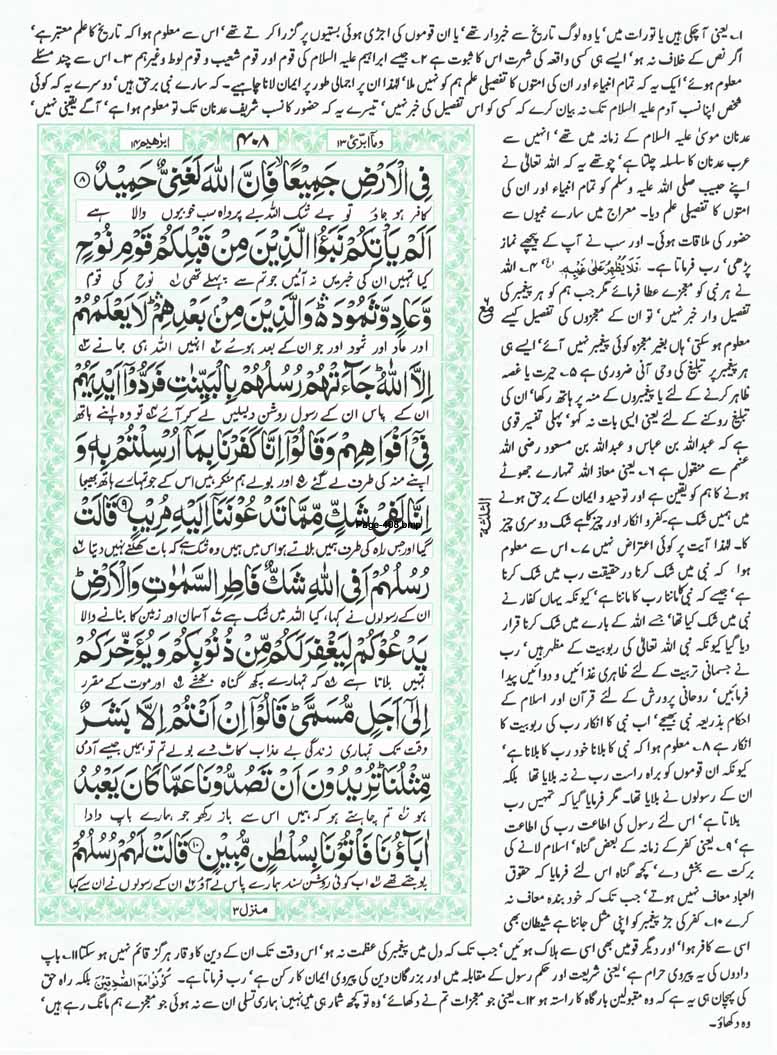 ۱۔ یعنی آ چکی ہیں یا تورات میں' یا وہ لوگ تاریخ سے خبردار تھے' یا ان قوموں کی اجڑی ہوئی بستیوں پر گزرا کرتے تھے' اس سے معلوم ہوا کہ تاریخ کا علم معتبر ہے'
اگر نص کے خلاف نہ ہو' ایسے ہی کسی واقعہ کی شہرت اس کا ثبوت ہے ۲۔ جیسے ابراہیم علیہ السلام کی قوم اور قوم شعیب و قوم لوط وغیرہم ۳۔ اس سے چند مسئلے
معلوم ہوئے' ایک یہ کہ تمام انبیاء اور ان کی امتوں کا تفصیلی علم ہم کو نہیں ملا' لہٰذا ان پر اجمالی طور پر ایمان لانا چاہیے۔ کہ سارے نبی برحق ہیں' دوسرے یہ کہ کوئی
شخص اپنا نسب آدم علیہ السلام تک نہ بیان کرے کہ کسی کو اس تفصیل کی خبر نہیں' تیسرے یہ کہ حضور کا نسب شریف عدنان تک تو معلوم ہوا ہے' آگے یقینی نہیں'
عدنان موسیٰ علیہ السلام کے زمانہ میں تھے' انہیں سے
عرب عدنان کا سلسلہ چلتا ہے' چوتھے یہ کہ اللہ تعالیٰ نے
اپنے حبیب صلی اللہ علیہ وسلم کو تمام انبیاء اور ان کی
امتوں کا تفصیلی علم دیا۔ معراج میں سارے نبیوں سے
حضور کی ملاقات ہوئی۔ اور سب نے آپ کے پیچھے نماز
پڑھی' رب فرماتا ہے۔ فَلَا يُظْهِرُ عَلٰى غَيْبِهٖ ۴۔ اللہ
نے ہر نبی کو معجزے عطا فرمائے مگر جب ہم کو ہر پیغمبر کی
تفصیل وار خبر نہیں' تو ان کے معجزوں کی تفصیل کیسے
معلوم ہو سکتی' ہاں بغیر معجزہ کوئی پیغمبر نہیں آئے' ایسے ہی
ہر پیغمبر پر تبلیغ کی وحی آنی ضروری ہے ۵۔ حیرت یا غصہ
ظاہر کرنے کے لئے یا پیغمبروں کے منہ پر ہاتھ رکھا' ان کی
تبلیغ روکنے کے لئے یعنی ایسی بات نہ کہو' پہلی تفسیر قوی
ہے کہ عبداللہ بن عباس و عبداللہ بن مسعود رضی اللہ
عنہم سے منقول ہے ۶۔ یعنی معاذ اللہ تمہارے جھوٹے
ہونے کا ہم کو یقین ہے اور توحید و ایمان کے برحق ہونے
میں ہمیں شک ہے۔ کفر و انکار اور چیز کا ہے شک دوسری چیز
کا۔ لہٰذا آیت پر کوئی اعتراض نہیں ۷۔ اس سے معلوم
ہوا کہ نبی میں شک کرنا در حقیقت رب میں شک کرنا
ہے' جیسے کہ نبی کا ماننا رب کا ماننا ہے' کیونکہ یہاں کفار نے
نبی میں شک کیا تھا' جسے اللہ کے بارے میں شک قرار
دیا گیا کیونکہ نبی اللہ تعالیٰ کی ربوبیت کے مظہر ہیں' رب
نے جسمانی تربیت کے لئے ظاہری غذائیں و دوائیں پیدا
فرمائیں' روحانی پرورش کے لئے قرآن اور اسلام کے
احکام بذریعہ نبی بھیجے' اب نبی کا انکار رب کی ربوبیت کا
انکار ہے ۸۔ معلوم ہوا کہ نبی کا بلانا خود رب کا بلانا ہے'
کیونکہ ان قوموں کو براہ راست رب نے نہ بلایا تھا بلکہ
ان کے رسولوں نے بلایا تھا۔ مگر فرمایا گیا کہ تمہیں رب
بلاتا ہے' اس لئے رسول کی اطاعت رب کی اطاعت
ہے ۹۔ یعنی کفر کے زمانہ کے بعض گناہ' اسلام لانے کی
برکت سے بخش دے' کچھ گناہ اس لئے فرمایا کہ حقوق
العباد معاف نہیں ہوتے' جب تک کہ خود بندہ معاف نہ
کرے ۱۰۔ کفر کی جڑ پیغمبر کو اپنی مثل جاننا ہے شیطان بھی
وما ابرئ ۱۳
۴۰۸
ابرٰھیم ۱۴
فِي الْاَرْضِ جَمِيْعًا ۙ فَاِنَّ اللّٰهَ لَغَنِيٌّ حَمِيْدٌ ۸
کافر ہو جاؤ تو بے شک اللہ بے پرواہ سب خوبیوں والا ہے
اَلَمْ يَاْتِكُمْ نَبَؤُا الَّذِيْنَ مِنْ قَبْلِكُمْ قَوْمِ نُوْحٍ
کیا تمہیں ان کی خبریں نہ آئیں جو تم سے پہلے تھی ۱ نوح کی قوم
وَّعَادٍ وَّثَمُوْدَ ۛ وَالَّذِيْنَ مِنْ بَعْدِهِمْ ۛ لَا يَعْلَمُهُمْ
اور عاد اور ثمود اور جو ان کے بعد ہوئے ۲ انہیں اللہ ہی جانے ۳
اِلَّا اللّٰهُ ۭ جَآءَتْهُمْ رُسُلُهُمْ بِالْبَيِّنٰتِ فَرَدُّوْٓا اَيْدِيَهُمْ
ان کے پاس ان کے رسول روشن دلیلیں لے کر آئے ۴ تو وہ اپنے ہاتھ
فِيْٓ اَفْوَاهِهِمْ وَقَالُوْٓا اِنَّا كَفَرْنَا بِمَآ اُرْسِلْتُمْ بِهٖ وَ
اپنے منہ کی طرف لے گئے ۵ اور بولے ہم منکر ہیں اس کے جو تمہارے ہاتھ بھیجا
اِنَّا لَفِيْ شَكٍّ مِّمَّا تَدْعُوْنَنَآ اِلَيْهِ مُرِيْبٍ ۹ قَالَتْ
Page-408.bmp
گیا اور جس راہ کی طرف ہمیں بلاتے ہو اس میں ہمیں وہ شک ہے کہ بات کھلنے نہیں دیتا ۶
رُسُلُهُمْ اَفِي اللّٰهِ شَكٌّ فَاطِرِ السَّمٰوٰتِ وَالْاَرْضِ ۭ
ان کے رسولوں نے کہا، کیا اللہ میں شک ہے ۷ آسمان اور زمین کا بنانے والا
يَدْعُوْكُمْ لِيَغْفِرَ لَكُمْ مِّنْ ذُنُوْبِكُمْ وَيُؤَخِّرَكُمْ
تمہیں بلاتا ہے ۸ کہ تمہارے کچھ گناہ بخشے ۹ اور موت کے مقرر
اِلٰٓى اَجَلٍ مُّسَمًّى ۭ قَالُوْٓا اِنْ اَنْتُمْ اِلَّا بَشَرٌ
وقت تک تمہاری زندگی بے عذاب کاٹ دے بولے تم تو ہمیں جیسے آدمی
مِّثْلُنَا ۭ تُرِيْدُوْنَ اَنْ تَصُدُّوْنَا عَمَّا كَانَ يَعْبُدُ
ہو ۱۰ تم چاہتے ہو کہ ہمیں اس سے باز رکھو جو ہمارے باپ دادا
اٰبَآؤُنَا فَاْتُوْنَا بِسُلْطٰنٍ مُّبِيْنٍ ۱۰ قَالَتْ لَهُمْ رُسُلُهُمْ
پوجتے تھے ۱۱ اب کوئی روشن سند ہمارے پاس لے آؤ ۱۲ ان کے رسولوں نے ان سے کہا
منزل ۳
الثلٰثة
اسی سے کافر ہوا' اور دیگر قومیں بھی اسی سے ہلاک ہوئیں' جب تک کہ دل میں پیغمبر کی عظمت نہ ہو' اس وقت تک ان کے دین کا وقار ہرگز قائم نہیں ہو سکتا ۱۱۔ باپ
دادوں کی یہ پیروی حرام ہے' یعنی شریعت اور حکم رسول کے مقابلہ میں اور بزرگان دین کی پیروی ایمان کا رکن ہے' رب فرماتا ہے۔ كُوْنُوْا مَعَ الصّٰدِقِيْنَ بلکہ راہ حق
کی پہچان ہی یہ ہے کہ وہ مقبولین بارگاہ کا راستہ ہو ۱۲۔ یعنی جو معجزات تم نے دکھائے' وہ تو کچھ شمار ہی میں نہیں' ہماری تسلی ان سے نہ ہوئی جو معجزے ہم مانگ رہے ہیں'
وہ دکھاؤ۔